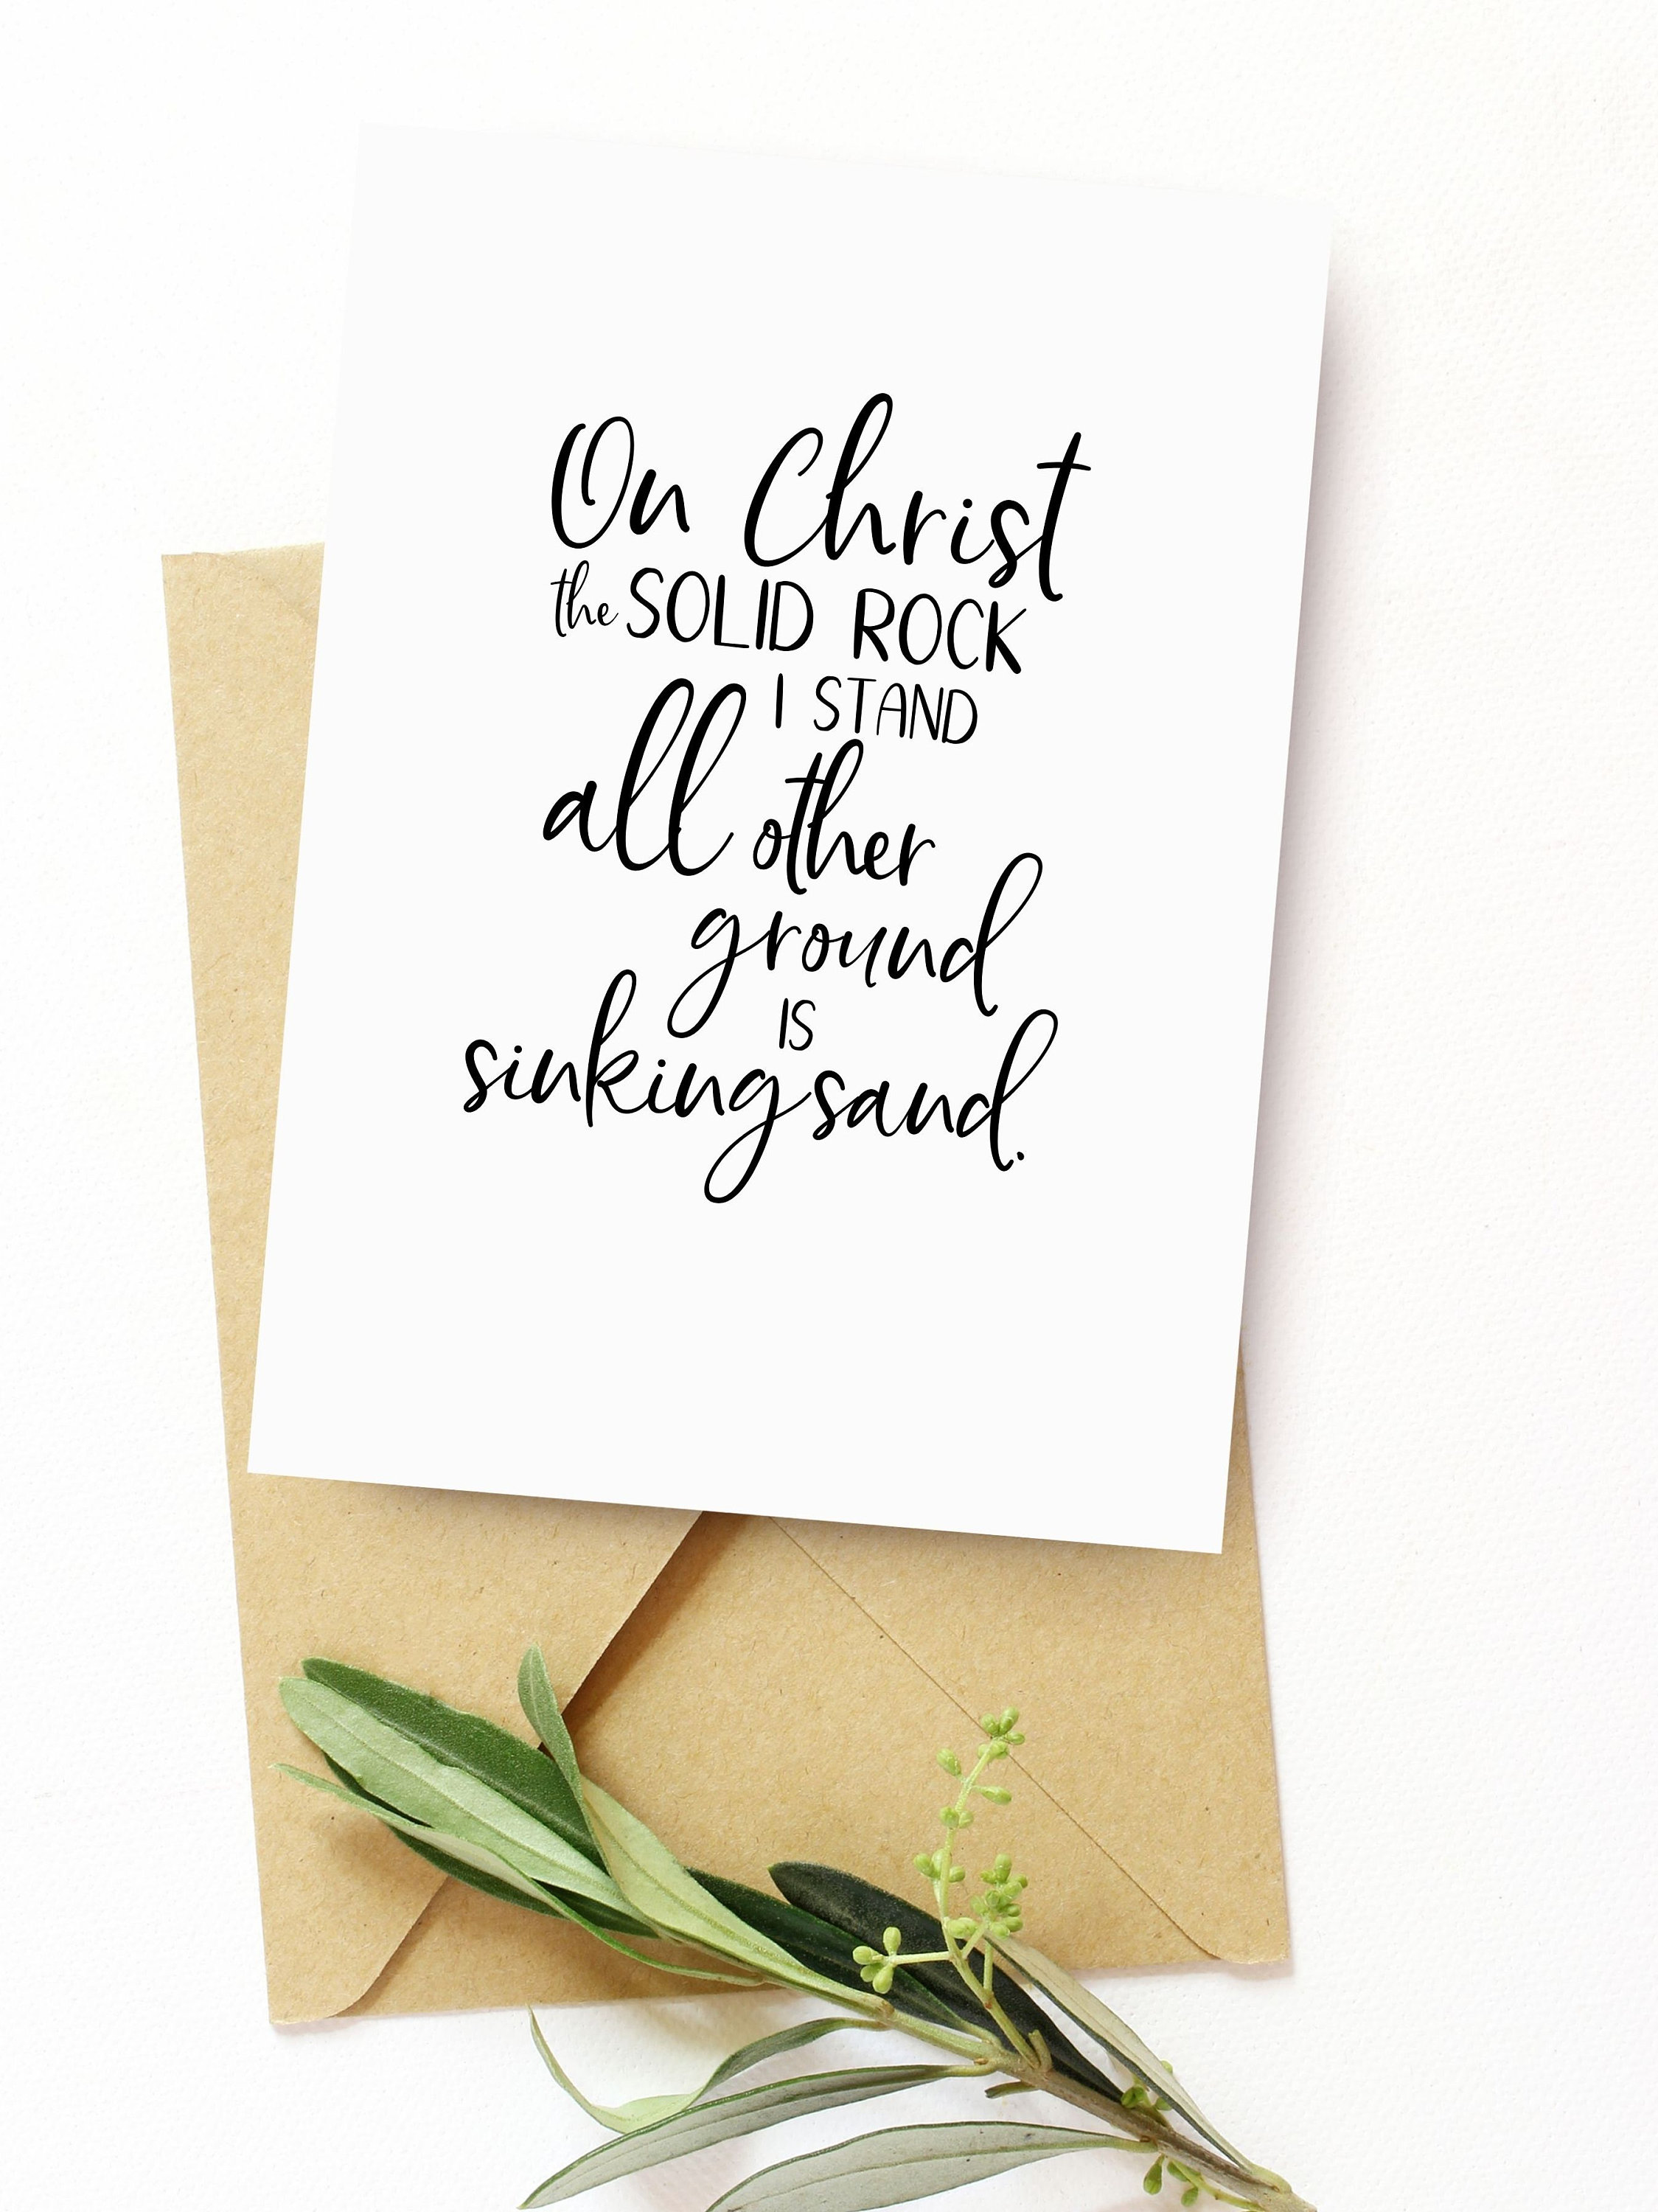 On Christ
the SOLID ROCK
I STAND
all other
ground
IS
sinking sand.